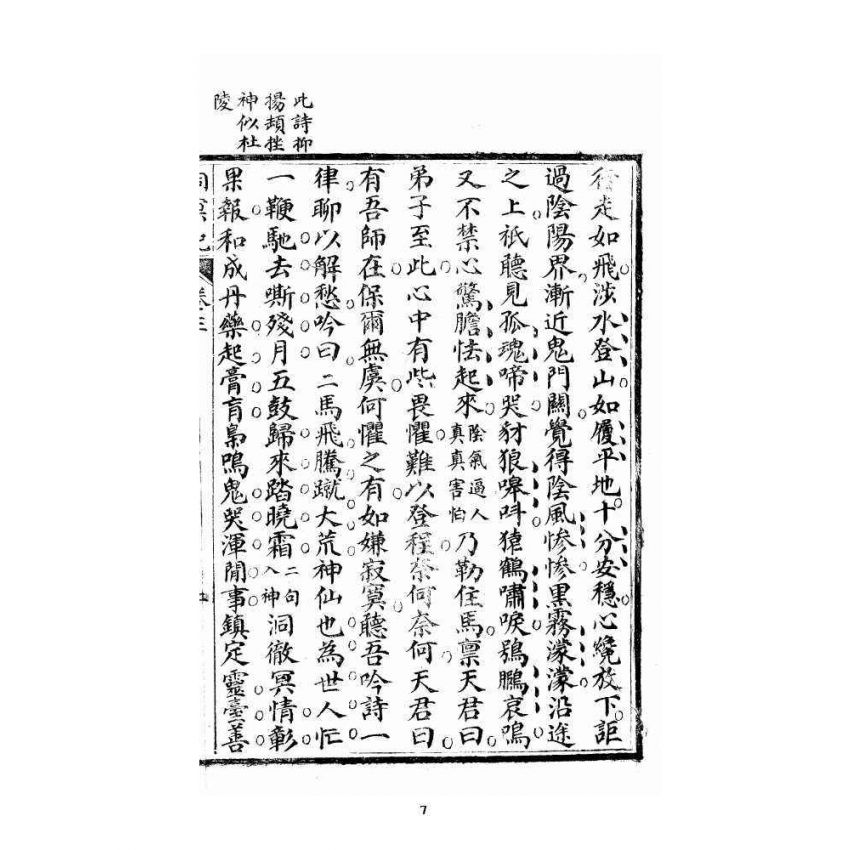 此詩抑
揚頓挫
神似杜
陵
行走如飛涉水登山如履平地十分安穩心纔放下詎
過陰陽界漸近鬼門關覺得陰風慘慘黑霧濛濛沿途
之上祇聽見孤魂啼哭豺狼嗥叫猿鶴嘯唳鴞鵬哀鳴
又不禁心驚膽怯起來陰氣逼人真真害怕乃勒住馬禀天君曰
弟子至此心中有些畏懼難以登程奈何奈何天君曰
有吾師在保爾無虞何懼之有如嫌寂寞聽吾吟詩一
律聊以解愁吟曰二馬飛騰蹴大荒神仙也為世人忙
一鞭馳去嘶殘月五鼓歸來踏曉霜二句入神洞徹冥情彰
果報和成丹藥起膏肓梟鳴鬼哭渾閒事鎮定靈臺善
洞冥記 卷三
7